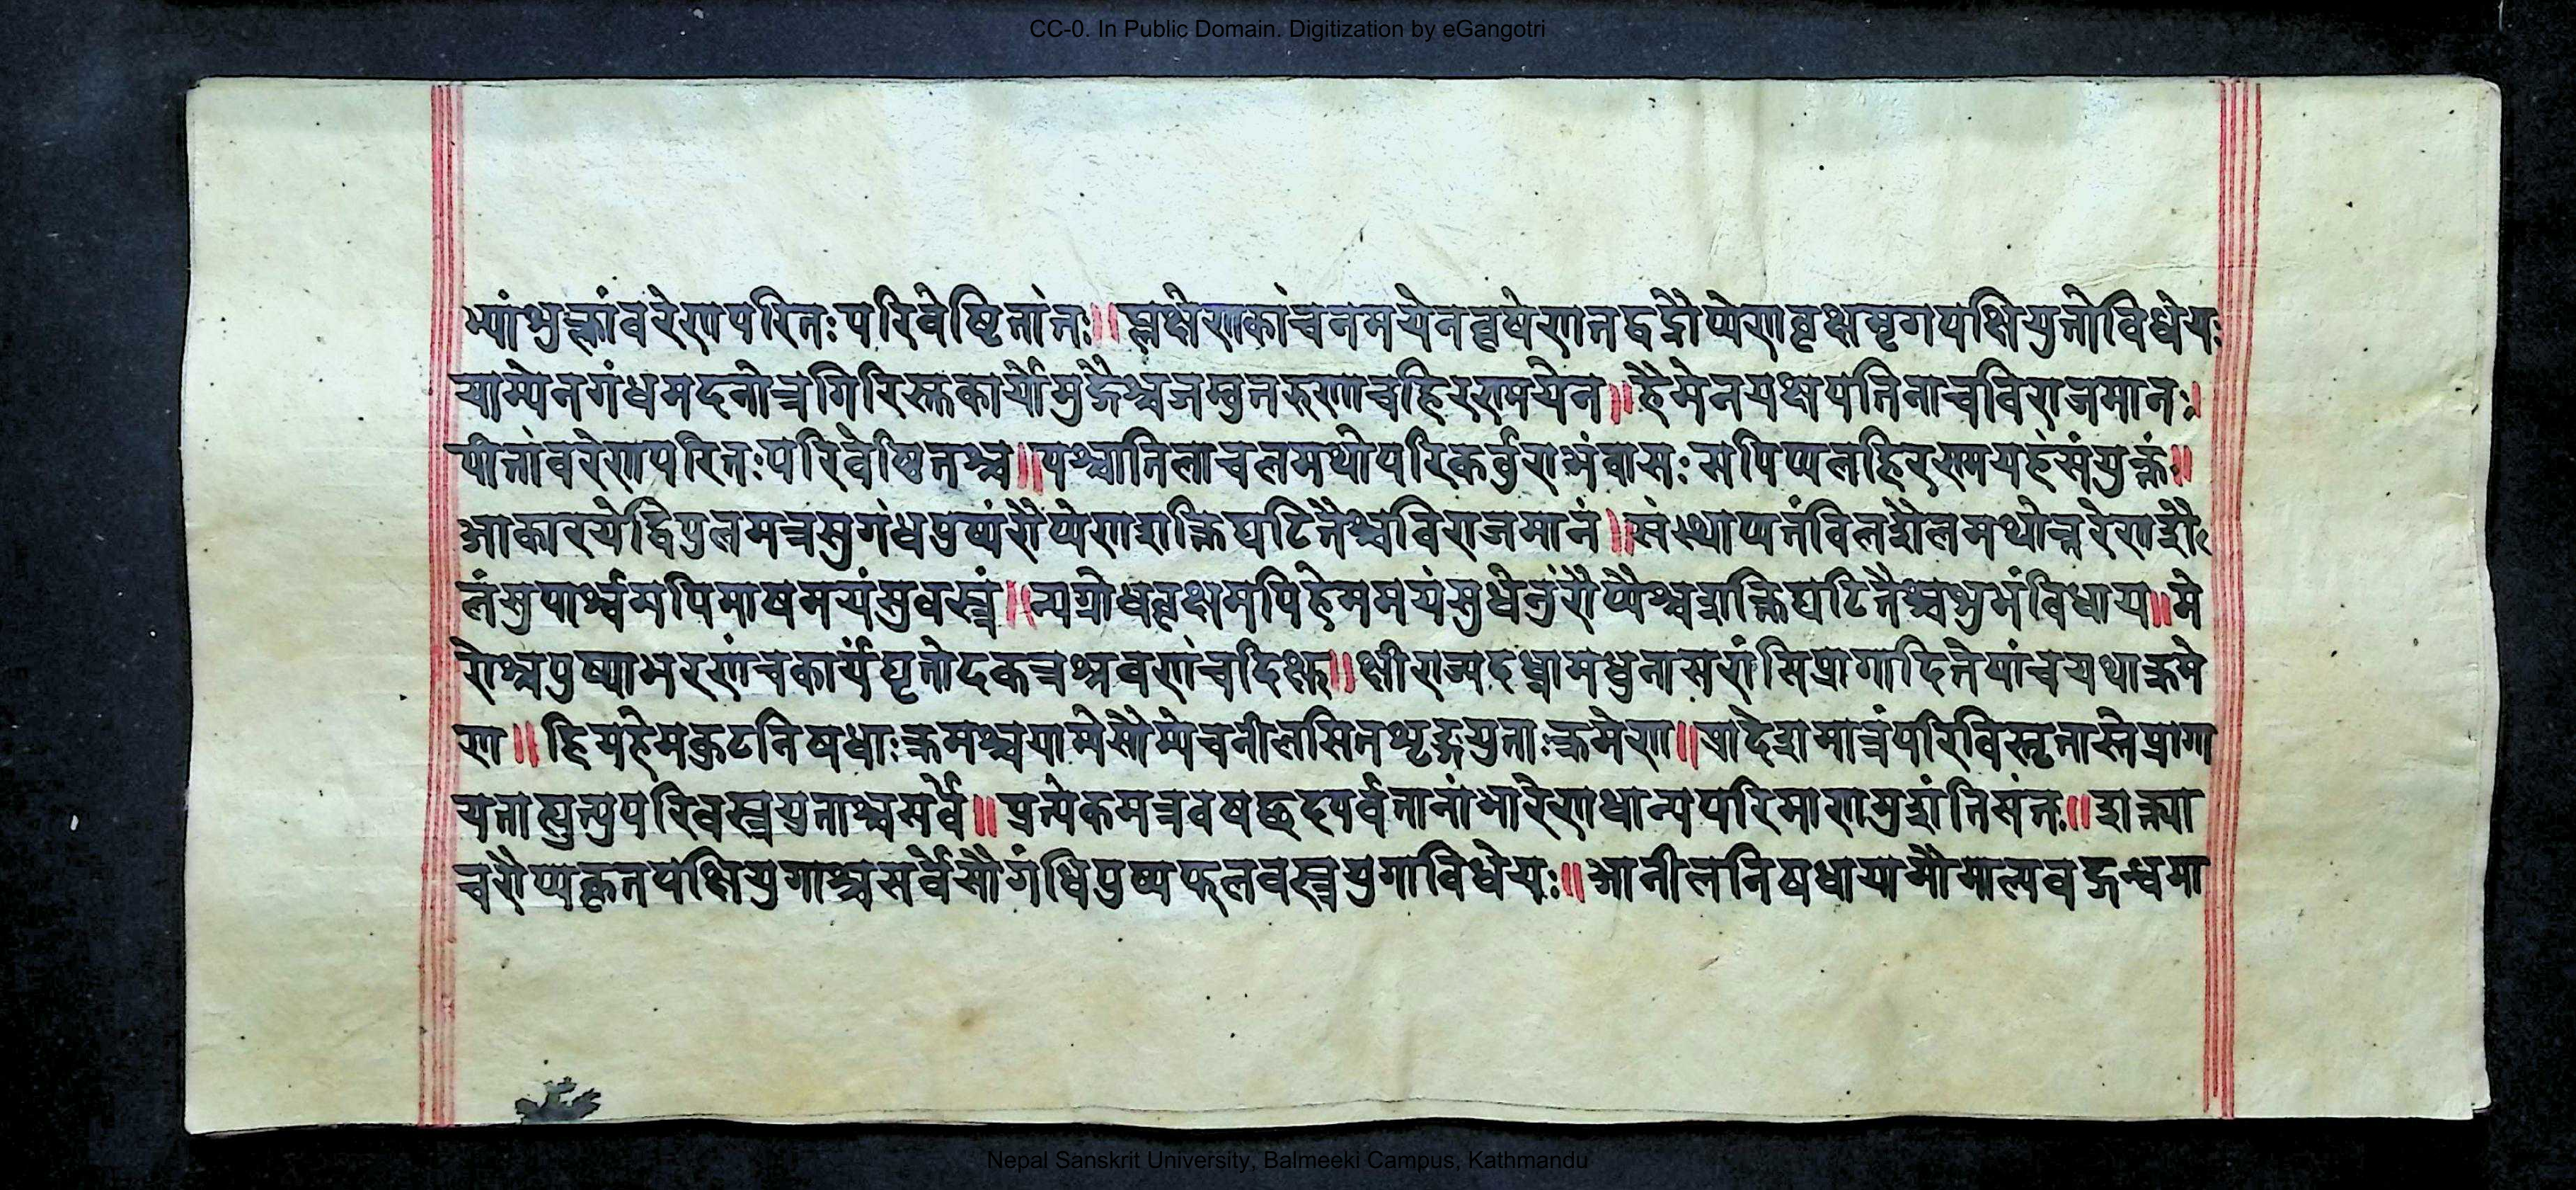 CC-0. In Public Domain. Digitization by eGangotri
भ्यांभुक्लांवरेणपरितःपरिवेष्टितांतः॥प्लक्षेणकांचनमयेनवृषेणतद्वद्रौप्येणवृक्षमृगपक्षियुतोविधेयः
याम्येनगंधमदनोत्रगिरिस्तकार्योमुद्गैश्चजम्वुतरुणाचहिरण्मयेन॥हैमेनयक्षपतिनाचविराजमानः।
पीतांवरेणपरितःपरिवेष्टितश्च॥पश्चातिलाचलमथोपरिकर्वुराभंवासःसपिप्पलहिरण्मयहंसंयुक्तं॥
आकारयेद्विपुलमत्रसुगंधपुष्पंरौप्येणशक्तिघटितैश्चविराजमानं॥संस्थाप्यतंविलशैलमथोत्तरेणशै
लंसुपार्श्वमपिमाषमयंसुवस्त्रं॥न्यग्रोधवृक्षमपिहेममयंसुधेनुंरौप्यैश्चशक्तिघटितैश्चभुभंविधाय॥मे
रोश्चपुष्पाभरणंचकार्यंघृतोदकत्रश्रवणंचदिक्षु॥क्षीराज्यदध्नामधुनासरांसिप्रागादितैयांचयथाक्रमे
ण॥हिमहेमकुटनिषधाःक्रमश्चयामेसौम्येचनीलसितशृङ्गयुताःक्रमेण॥प्रादेशमात्रंपरिविस्तृतास्तेप्रागा
यताप्युत्युपरिवस्त्रयुताश्चसर्वे॥प्रत्येकमत्रवषद्छदपर्वतानांभारेणधान्यपरिमाणमुशंतिसंतः॥शक्त्या
चरौप्यकृतपक्षियुगाश्चसर्वेसौगंधिपुष्पफलवस्त्रयुगाविधेयः॥आनीलनिषधायामौमाल्यवद्गन्धमा
Nepal Sanskrit University, Balmeeki Campus, Kathmandu